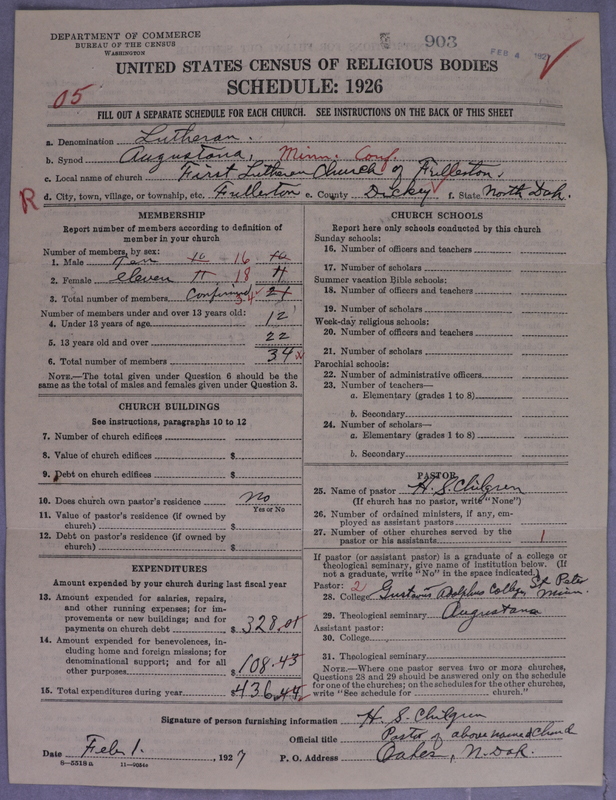 DEPARTMENT OF COMMERCE
BUREAU OF THE CENSUS
WASHINGTON
903
FEB 4 1927
UNITED STATES CENSUS OF RELIGIOUS BODIES
SCHEDULE: 1926
05
FILL OUT A SEPARATE SCHEDULE FOR EACH CHURCH. SEE INSTRUCTIONS ON THE BACK OF THIS SHEET
a. Denomination Lutheran.
b. Synod Augustana, Minn. Conf.
c. Local name of church First Lutheran Church of Fullerton.
R d. City, town, village, or township, etc. Fullerton e. County Dickey f. State North Dak.
MEMBERSHIP
Report number of members according to definition of member in your church
Number of members, by sex:
1. Male Ten 10 16 10
2. Female eleven 11 18 11
3. Total number of members Confirmed 34 21
Number of members under and over 13 years old:
4. Under 13 years of age 12
5. 13 years old and over 22
6. Total number of members 34
NOTE.—The total given under Question 6 should be the
same as the total of males and females given under Question 3.
CHURCH BUILDINGS
See instructions, paragraphs 10 to 12
7. Number of church edifices
8. Value of church edifices $
9. Debt on church edifices $
10. Does church own pastor's residence No
Yes or No
11. Value of pastor's residence (if owned by
church) $
12. Debt on pastor's residence (if owned by
church) $
EXPENDITURES
Amount expended by your church during last fiscal year
13. Amount expended for salaries, repairs,
and other running expenses; for im-
provements or new buildings; and for
payments on church debt $ 328.01
14. Amount expended for benevolences, in-
cluding home and foreign missions; for
denominational support; and for all
other purposes $ 108.43
15. Total expenditures during year $ 436.44
CHURCH SCHOOLS
Report here only schools conducted by this church
Sunday schools:
16. Number of officers and teachers
17. Number of scholars
Summer vacation Bible schools:
18. Number of officers and teachers
19. Number of scholars
Week-day religious schools:
20. Number of officers and teachers
21. Number of scholars
Parochial schools:
22. Number of administrative officers
23. Number of teachers—
a. Elementary (grades 1 to 8)
b. Secondary
24. Number of scholars—
a. Elementary (grades 1 to 8)
b. Secondary
PASTOR
25. Name of pastor H. S. Chilgren
(If church has no pastor, write "None")
26. Number of ordained ministers, if any, em-
ployed as assistant pastors
27. Number of other churches served by the
pastor or his assistants 1
If pastor (or assistant pastor) is a graduate of a college or
theological seminary, give name of institution below. (If
not a graduate, write "No" in the space indicated.)
Pastor: 2
28. College Gustavus Adolphus College, St. Peter Minn.
29. Theological seminary Augustana
Assistant pastor:
30. College
31. Theological seminary
NOTE.—Where one pastor serves two or more churches,
Questions 28 and 29 should be answered only on the schedule
for one of the churches; on the schedules for the other churches,
write "See schedule for church."
Signature of person furnishing information H. S. Chilgren
Official title Pastor of above named Church
Date Feb. 1. , 1927 P. O. Address Oakes, N. Dak.
8—5518a 11—9084